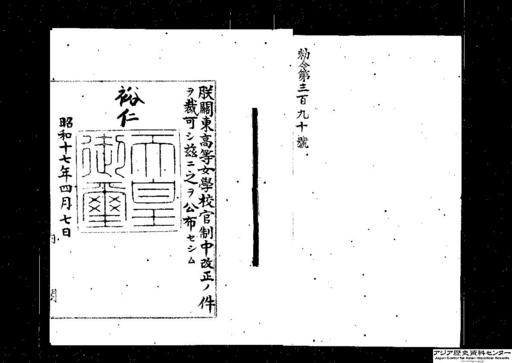 勅令第三百九十號
朕關東高等女學校官制中改正ノ件
ヲ裁可シ茲ニ之ヲ公布セシム
裕仁
天皇
御璽
昭和十七年四月七日
アジア歴史資料センター
Japan Center for Asian Historical Records